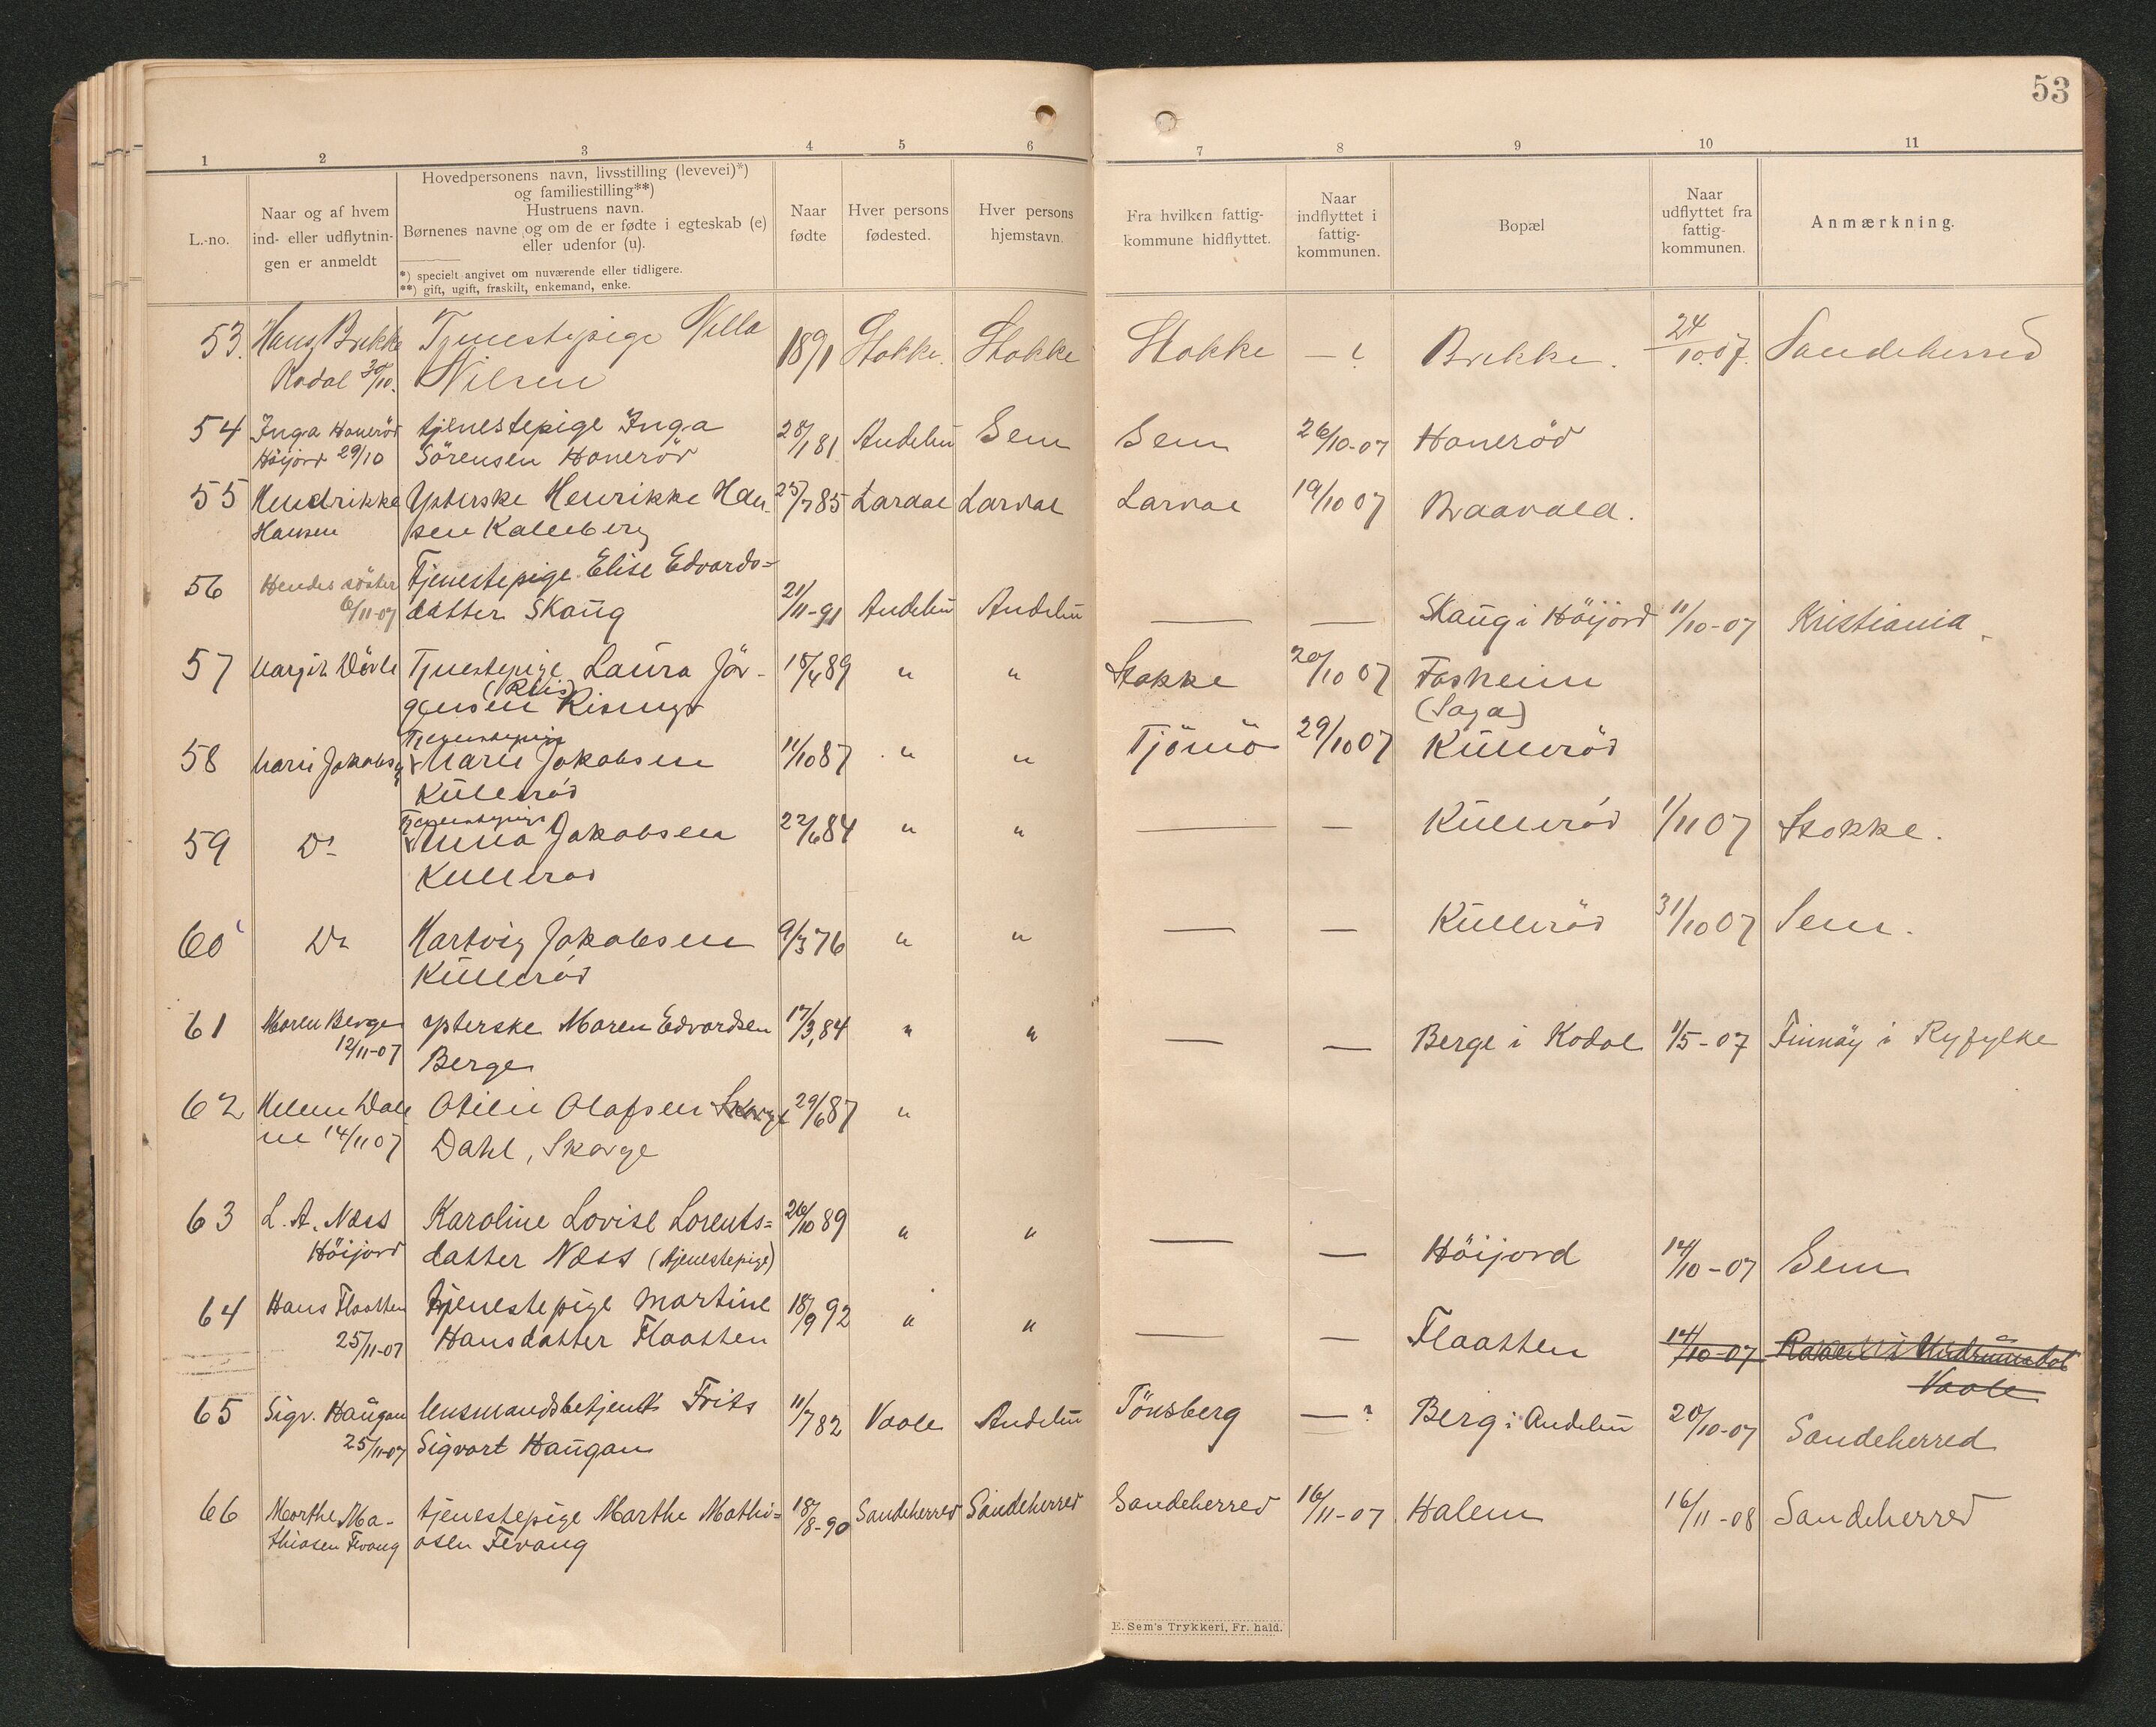 53
1 2 3 4 5 6 7 8 9 10 11
L.-no.
Naar og af hvem
ind- eller udflytnin-
gen er anmeldt
Hovedpersonens navn, livsstilling (levevei)*)
og familiestilling**)
Hustruens navn.
Børnenes navne og om de er fødte i egteskab (e)
eller udenfor (u).
*) specielt angivet om nuværende eller tidligere.
**) gift, ugift, fraskilt, enkemand, enke.
Naar
fødte
Hver persons
fødested.
Hver persons
hjemstavn.
Fra hvilken fattig-
kommune hidflyttet.
Naar
indflyttet i
fattig-
kommunen.
Bopæl
Naar
udflyttet fra
fattig-
kommunen.
Anmærkning.
53. Hans Brekke Tjenestepige Villa 1891 Stokke. Stokke Stokke — ? Brekke. 24/10.07. Sandeherred
Kodal 30/10. Nilsen
54 Inga Honeröd tjenestepige Inga 28/1 81 Andebu Sem Sem 26/10-07 Honeröd
Höijord 29/10 Sörensen Honeröd
55 Hendrikke Ypterske Henrikke Han- 25/7 85 Lardal Lardal Lardal 19/10 07 Braavald.
Hansen sen Kaleberg
56 Hendes söster Tjenestepige Elise Edvards= 21/11-91 Andebu Andebu — — Skaug i Höijord 11/10-07 Kristiania
6/11-07 datter Skaug
57 Margit Dövle Tjenestepige Laura Jör- 18/4 89 " " Stokke 20/10 07 Fosheim
gensen Risings (Saga)
58 Marie Jakobsen Tjenestepige Marie Jakobsen 11/10 87 " " Tjömö 29/10 07 Kulleröd
Kulleröd
59 Do Tjenestepige Anna Jakobsen 22/6 84 " " — — Kulleröd 1/11 07 Stokke.
Kulleröd
60 Do Hartvig Jakobsen 9/3 76 " " — — Kulleröd 31/10 07 Sem.
Kulleröd
61 Maren Berge ypterske Maren Edvardsen 17/3,84 " " — — Berge i Kodal 1/5-07 Finnöy i Ryfylke
12/11-07 Berge
62 Otilie Olafsen Skorge 29/6 87 "
14/11 07 Dahl, Skorge
63 L. A. Næss Karoline Lovise Lorents= 26/10 89 " " — — Höijord 14/10-07 Sem
Höijord datter Næss (tjenestepige)
64 Hans Flaatten tjenestepige Martine 18/9 92 " " — — Flaatten 14/10-07
25/11-07 Hansdatter Flaatten Vaale
65 Sigv. Haugan lensmandsbetjent Frits 11/7 82 Vaale Andebu Tönsberg — ? Berg i Andebu 20/10-07 Sandeherred
25/11-07 Sigvart Haugan
66 Marthe Ma- tjenestepige Marthe Mathi= 18/8-90 Sandeherred Sandeherred Sandeherred 16/11-07 Halem 16/11-08 Sandeherred
thiasen Fevang asen Fevang
E. Sem's Trykkeri, Fr. hald.